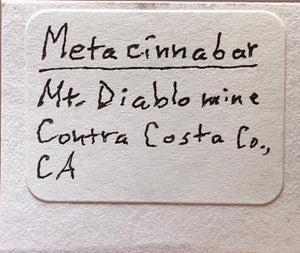 Metacinnabar
Mt. Diablo mine
Contra Costa Co.,
CA